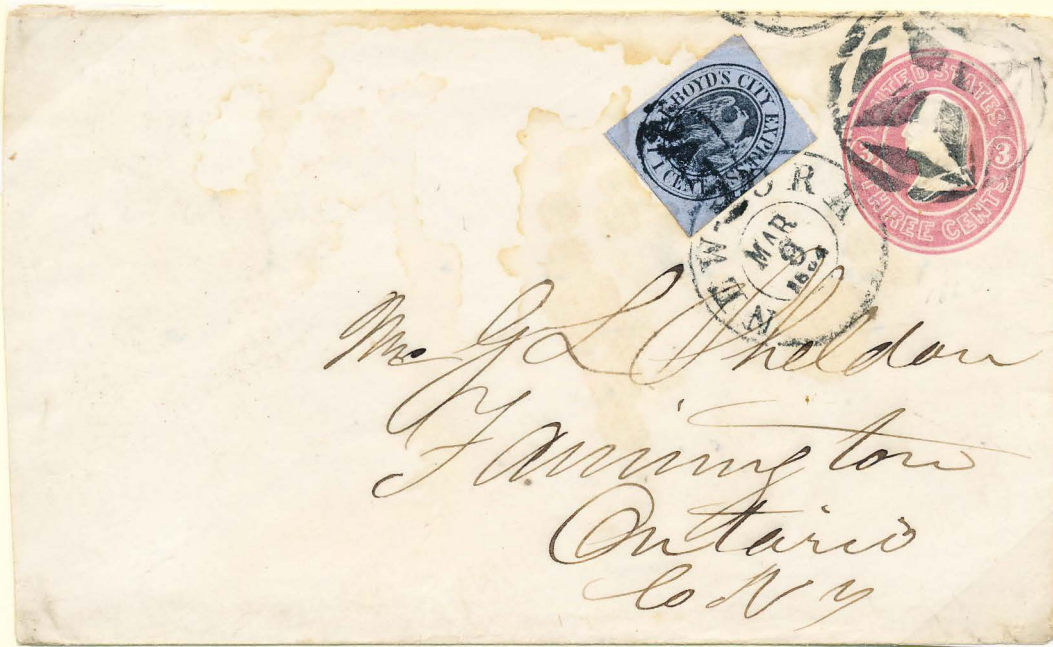 BOYD'S CITY EXPRESS
1 CENT
UNITED STATES
3
THREE CENTS
NEW YORK
MAR
9
Mr G L Sheldon
Farmington
Ontario
Co N Y